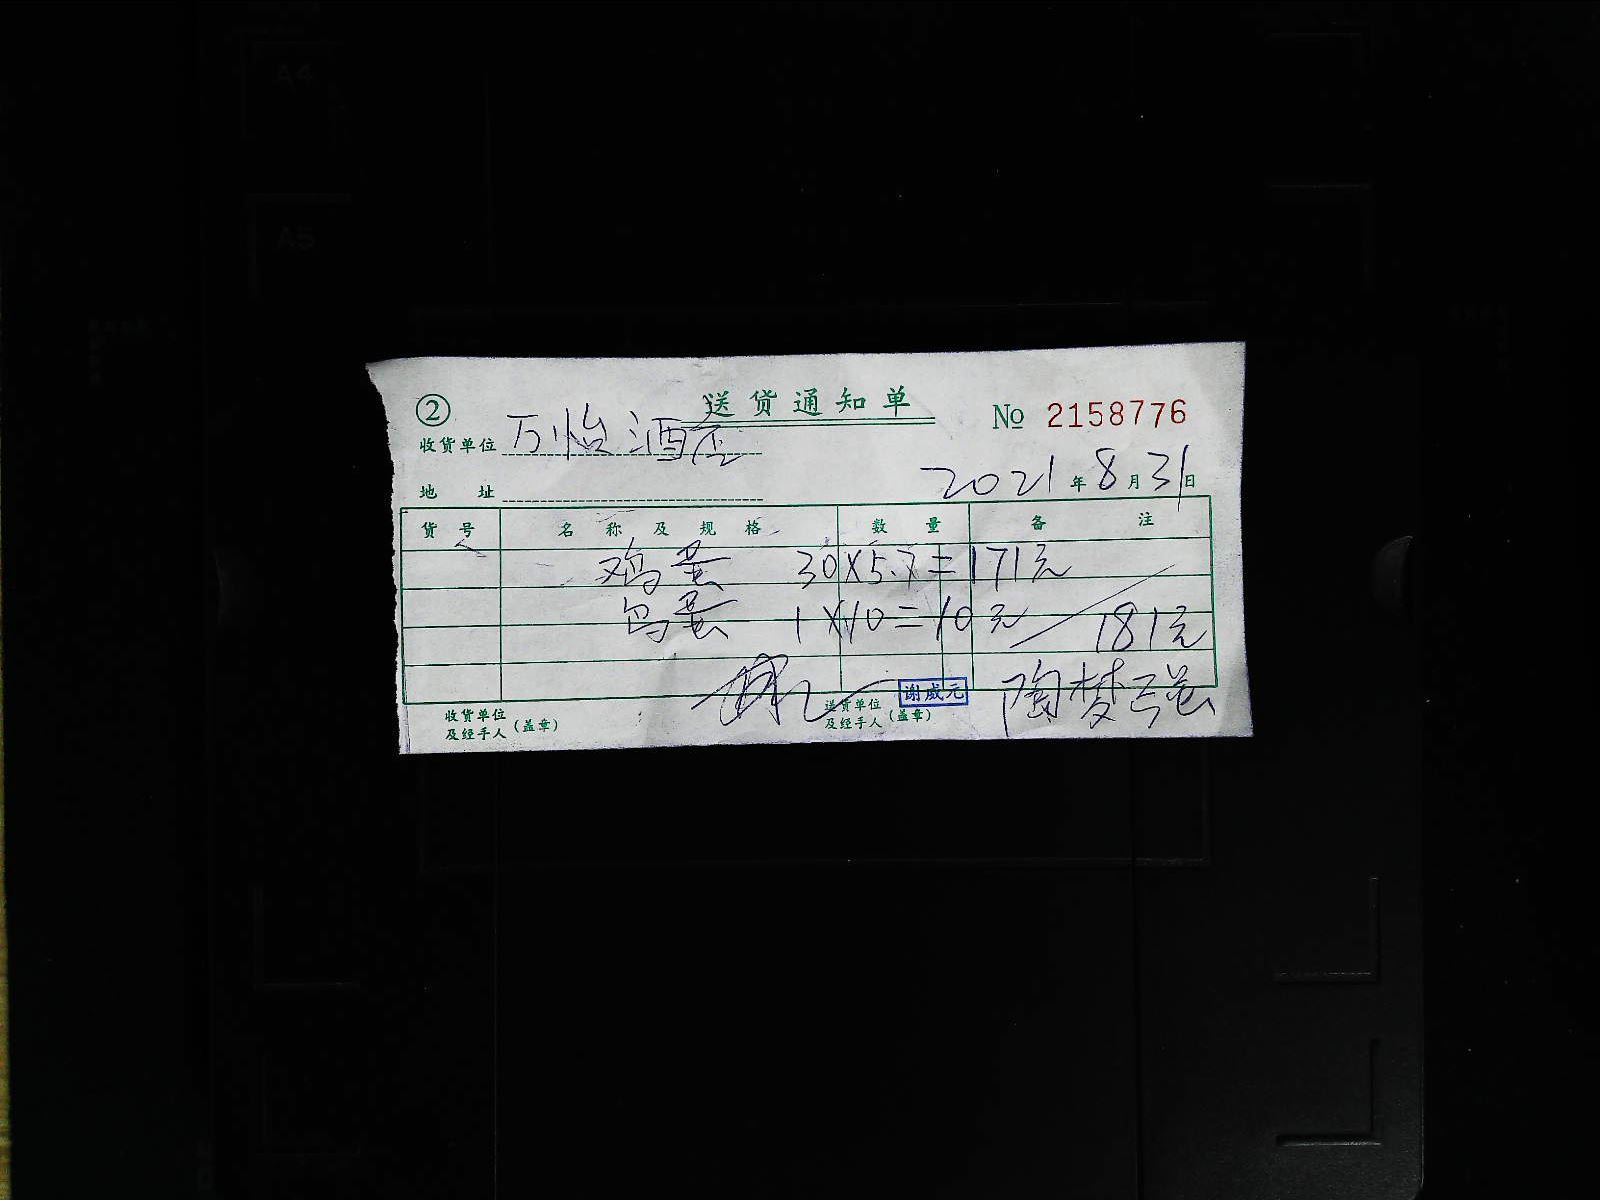 A4
A5
② 送货通知单 № 2158776
收货单位 万怡酒店
2021年8月31日
地 址
货号 名称及规格 数量 备注
鸡蛋 30×5.7=171元
鸟蛋 1×10=10元 181元
收货单位及经手人(盖章)
送货单位及经手人(盖章)
谢威元
陶梦云